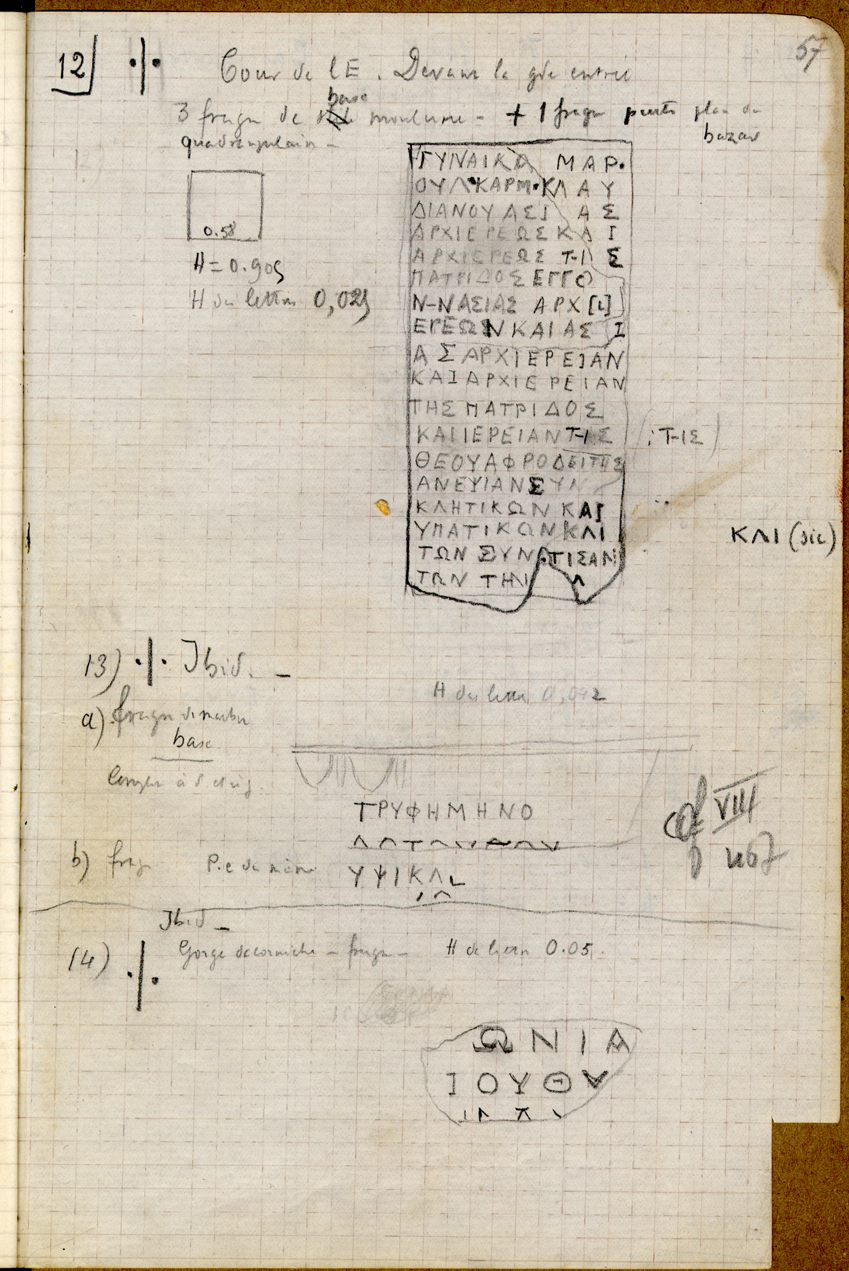 57
12 ·|· Cour de l'E. Devant la gde entrée
3 fragm de base moulurée - + 1 fragm
bazar
quadrangulaire -
0.58
H = 0.905
H des lettres 0,025
ΓΥΝΑΙΚΑ ΜΑΡ.
ΟΥΛ·ΚΑΡΜ·ΚΛΑΥ
ΔΙΑΝΟΥ ΑΣΙ ΑΣ
ΑΡΧΙΕΡΕΩΣ ΚΑΙ
ΑΡΧΙΕΡΕΩΣ Τ-Ι Σ
ΠΑΤΡΙΔΟΣ ΕΓΓΟ
Ν-ΝΑΣΙΑΣ ΑΡΧ[Ι]
ΕΡΕΩΝ ΚΑΙ ΑΣ Ι
Α Σ ΑΡΧΙΕΡΕΙΑΝ
ΚΑΙ ΑΡΧΙΕΡΕΙΑΝ
ΤΗΣ ΠΑΤΡΙΔΟΣ
ΚΑΙ ΙΕΡΕΙΑΝ Τ-ΙΣ (; Τ-ΙΣ)
ΘΕΟΥ ΑΦΡΟΔΕΙΤΗΣ
ΑΝΕΨΙΑΝ ΣΥΝ
ΚΛΗΤΙΚΩΝ ΚΑΙ
ΥΠΑΤΙΚΩΝ ΚΛΙ ΚΛΙ (sic)
ΤΩΝ ΣΥΝ.ΤΙΣΑΝ
ΤΩΝ ΤΗΝ Λ
13) ·|· Ibid. -
H des lettres 0,042
a) fragm de marbre
base
ΤΡΥΦΗΜΗΝΟ
cf VIII
467
b) fragm P.e du même
ΥΨΙΚΛ
Ibid -
14) ·|· Gorge de corniche - fragm - H de lettres 0.05.
ΩΝΙΑ
ΙΟΥΘ